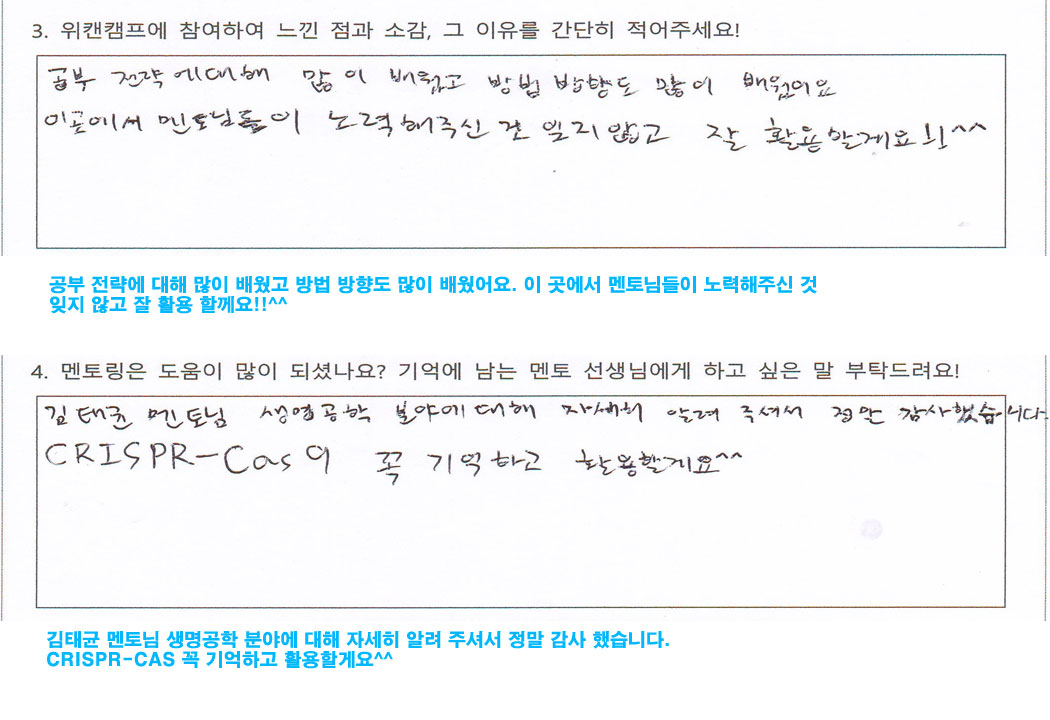 3. 위캔캠프에 참여하여 느낀 점과 소감, 그 이유를 간단히 적어주세요!
공부 전략에대해 많이 배웠고 방법 방향도 많이 배웠어요
이곳에서 멘토님들이 노력해주신 것 잊지않고 잘 활용할게요!!^^
공부 전략에 대해 많이 배웠고 방법 방향도 많이 배웠어요. 이 곳에서 멘토님들이 노력해주신 것
잊지 않고 잘 활용 할께요!!^^
4. 멘토링은 도움이 많이 되셨나요? 기억에 남는 멘토 선생님에게 하고 싶은 말 부탁드려요!
김태균 멘토님 생명공학 분야에대해 자세히 알려 주셔서 정말 감사했습니다.
CRISPR-Cas9 꼭 기억하고 활용할게요^^
김태균 멘토님 생명공학 분야에 대해 자세히 알려 주셔서 정말 감사 했습니다.
CRISPR-CAS 꼭 기억하고 활용할게요^^